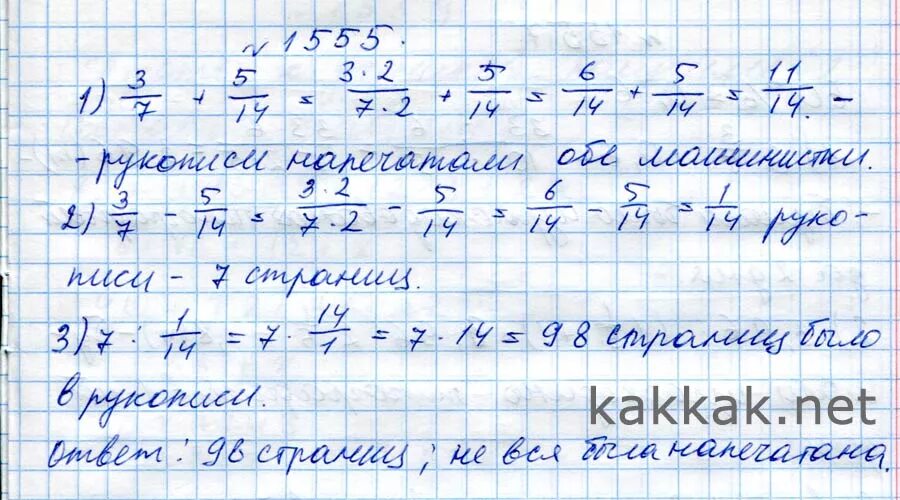 № 1555.
1) 3/7 + 5/14 = 3·2/7·2 + 5/14 = 6/14 + 5/14 = 11/14. -
- рукописи напечатали обе машинистки.
2) 3/7 - 5/14 = 3·2/7·2 - 5/14 = 6/14 - 5/14 = 1/14 руко-
писи - 7 страниц.
3) 7 : 1/14 = 7 · 14/1 = 7 · 14 = 98 страниц было
в рукописи.
Ответ: 98 страниц; не вся была напечатана.
kakkak.net